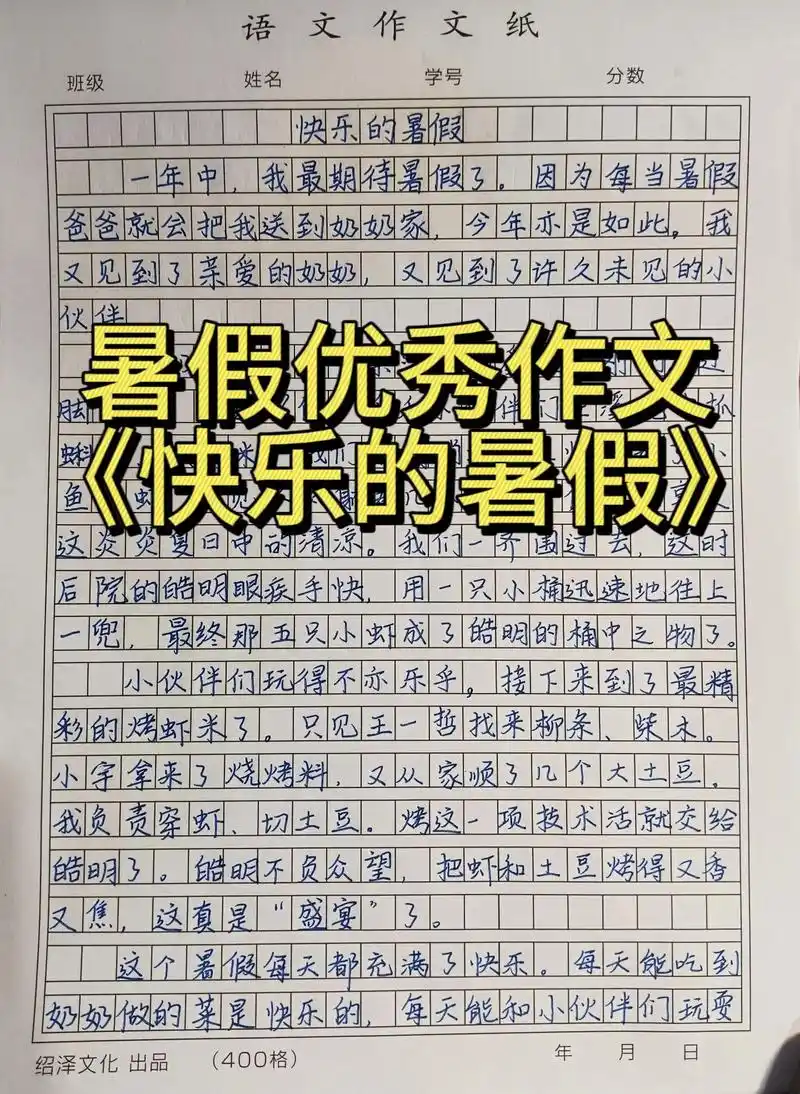 语文作文纸
班级 姓名 学号 分数
快乐的暑假
一年中，我最期待暑假了。因为每当暑假
爸爸就会把我送到奶奶家，今年亦是如此。我
又见到了亲爱的奶奶，又见到了许久未见的小
伙伴
暑假优秀作文
《快乐的暑假》
鱼
这炎炎夏日中的清凉。我们一齐围过去，这时
后院的皓明眼疾手快，用一只小桶迅速地往上
一兜，最终那五只小虾成了皓明的桶中之物了。
小伙伴们玩得不亦乐乎，接下来到了最精
彩的烤虾米了。只见王一哲找来柳条、柴木。
小宇拿来了烧烤料，又从家顺了几个大土豆。
我负责穿虾、切土豆。烤这一项技术活就交给
皓明了。皓明不负众望，把虾和土豆烤得又香
又焦，这真是“盛宴”了。
这个暑假每天都充满了快乐。每天能吃到
奶奶做的菜是快乐的，每天能和小伙伴们玩耍
绍泽文化 出品 （400格） 年 月 日